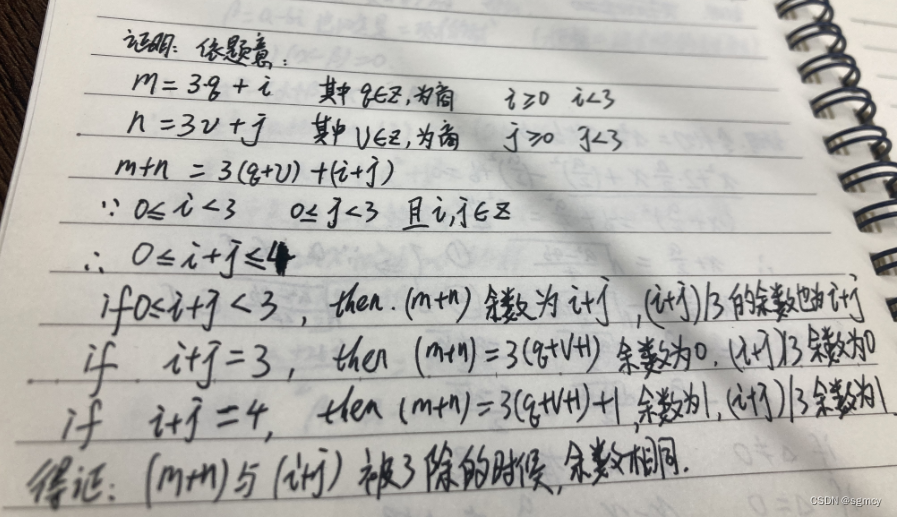 证明：依题意：
m = 3q + i 其中 q∈Z, 为商 i≥0 i<3
n = 3v + j 其中 v∈Z, 为商 j≥0 j<3
m+n = 3(q+v) + (i+j)
∵ 0≤i<3 0≤j<3 且 i, j∈Z
∴ 0≤i+j≤4
if 0≤i+j<3, then. (m+n) 余数为 i+j, (i+j)/3 的余数也为 i+j
if i+j=3, then (m+n)=3(q+v+1) 余数为0, (i+j)/3 余数为0
if i+j=4, then (m+n)=3(q+v+1)+1, 余数为1, (i+j)/3 余数为1
得证：(m+n) 与 (i+j) 被3除的时候, 余数相同.
CSDN @sgmcy